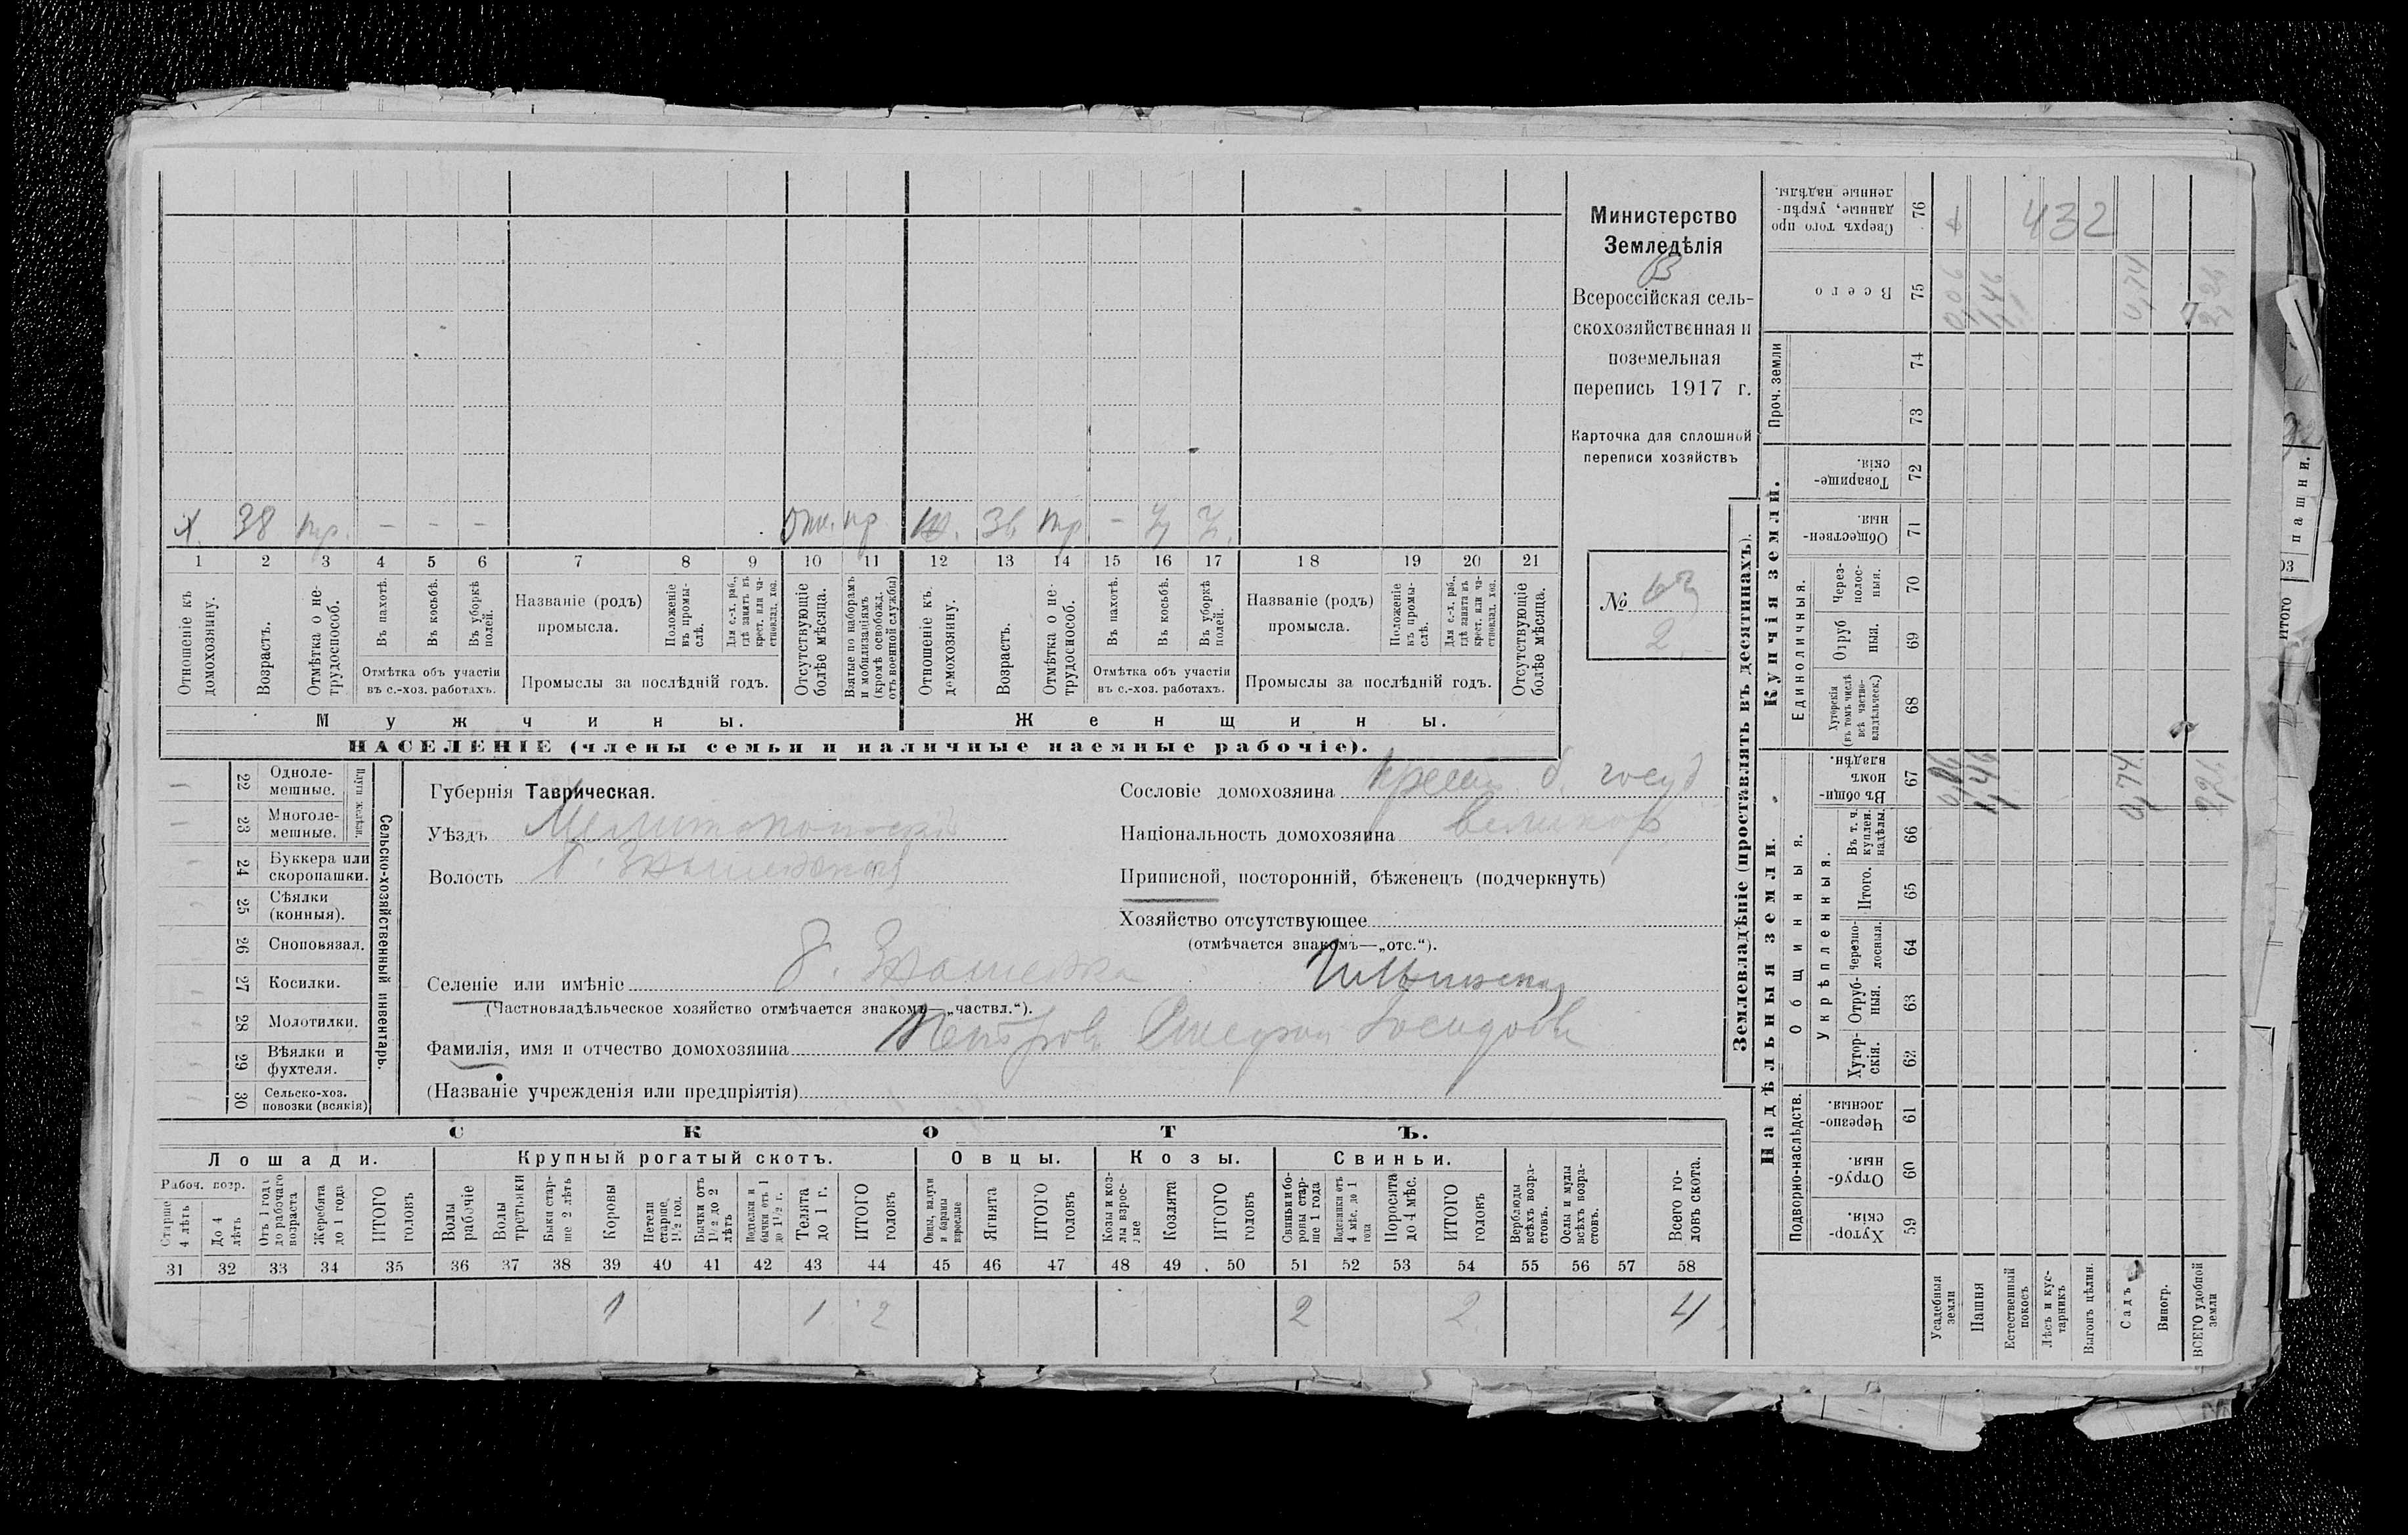 Министерство
Земледѣлія
Всероссійская сель-
скохозяйственная и
поземельная
перепись 1917 г.
Карточка для сплошной
переписи хозяйствъ
№ 63
2
Х. 38 тр. - - - отс. пр Ж. 36 тр - Ч Ч.
1 2 3 4 5 6 7 8 9 10 11 12 13 14 15 16 17 18 19 20 21
Отношеніе къ домохозяину.
Возрастъ.
Отмѣтка о не-трудоспособ.
Въ пахотѣ.
Въ косьбѣ.
Въ уборкѣ полей.
Отмѣтка объ участіи
въ с.-хоз. работахъ.
Названіе (родъ)
промысла.
Положеніе въ промы-слѣ.
Для с.-х. раб., гдѣ занятъ въ крест. или ча-стновлад. хоз.
Промыслы за послѣдній годъ.
Отсутствующіе болѣе мѣсяца.
Взятые по наборамъ и мобилизаціямъ (кромѣ освобожд. отъ военной службы)
Отношеніе къ домохозяину.
Возрастъ.
Отмѣтка о не-трудоспособ.
Въ пахотѣ.
Въ косьбѣ.
Въ уборкѣ полей.
Отмѣтка объ участіи
въ с.-хоз. работахъ.
Названіе (родъ)
промысла.
Положеніе въ промы-слѣ.
Для с.-х. раб., гдѣ занята въ крест. или ча-стновлад. хоз.
Промыслы за послѣдній годъ.
Отсутствующіе болѣе мѣсяца.
Мужчины.
Женщины.
НАСЕЛЕНІЕ (члены семьи и наличные наемные рабочіе).
22 Одноле-мешные.
23 Многоле-мешные.
Плуги желѣзн.
24 Буккера или скоропашки.
25 Сѣялки (конныя).
26 Сноповязал.
27 Косилки.
28 Молотилки.
29 Вѣялки и фухтеля.
30 Сельско-хоз. повозки (всякія)
Сельско-хозяйственный инвентарь.
Губернія Таврическая.
Уѣздъ Мелитопольскій
Волость Б. Знаменская
Селеніе или имѣніе Б. Знаменка Ильинская
(Частновладѣльческое хозяйство отмѣчается знакомъ—„частвл.“).
Фамилія, имя и отчество домохозяина Петровъ
(Названіе учрежденія или предпріятія)
Сословіе домохозяина крест. б. госуд
Національность домохозяина великор
Приписной, посторонній, бѣженецъ (подчеркнуть)
Хозяйство отсутствующее
(отмѣчается знакомъ—„отс.“).
СКОТЪ.
Лошади.
Крупный рогатый скотъ.
Овцы.
Козы.
Свиньи.
Рабоч. возр.
Старше 4 лѣтъ
До 4 лѣтъ
Отъ 1 года до рабочаго возраста
Жеребята до 1 года
ИТОГО головъ
Волы рабочіе
Волы третьяки
Быки стар-ше 2 лѣтъ
Коровы
Нетели старше 1½ год.
Бычки отъ 1½ до 2 лѣтъ
Подтелки и бычки отъ 1 до 1½ г.
Телята до 1 г.
ИТОГО головъ
Овцы, валухи и бараны взрослые
Ягнята
ИТОГО головъ
Козы и коз-лы взрос-лые
Козлята
ИТОГО головъ
Свиньи и бо-ровы стар-ше 1 года
Подсвинки отъ 4 мѣс. до 1 года
Поросята до 4 мѣс.
ИТОГО головъ
Верблюды всѣхъ возра-стовъ.
Ослы и мулы всѣхъ возра-стовъ.
Всего го-ловъ скота.
31 32 33 34 35 36 37 38 39 40 41 42 43 44 45 46 47 48 49 50 51 52 53 54 55 56 57 58
1 1 2 2 2 4
Землевладѣніе (проставлять въ десятинахъ).
Надѣльныя земли.
Купчія земли.
Проч. земли
Подворно-наслѣдств.
Общинныя.
Укрѣпленныя.
Единоличныя.
Хутор-скія. 59
Отруб-ныя. 60
Черезпо-лосныя. 61
Хутор-скія. 62
Отруб-ныя. 63
Черезпо-лосныя. 64
Итого. 65
Въ т. ч. куплен. надѣлы. 66
Въ общи-номъ владѣн. 67
Хуторскія (въ томъ числѣ всѣ частно-владѣльческ.) 68
Отруб ныя. 69
Через-полос-ныя. 70
Обществен-ныя. 71
Товарище-скія. 72
73
74
Всего 75
Сверхъ того про данные, укрѣп-ленные надѣлы. 76
Усадебныя земли
Пашня
Естественный покосъ
Лѣсъ и кус-тарникъ
Выгонъ цѣлин.
Садъ
Виногр.
ВСЕГО удобной земли
0,06 1,46 0,74 2,26
0,06 1,46 0,74 2,26
432
пашни.
Итого